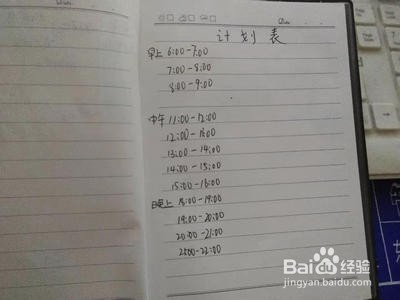 计划表
早上 6:00-7:00
7:00-8:00
8:00-9:00
中午 11:00-12:00
13:00-14:00
14:00-15:00
15:00-16:00
晚上 18:00-19:00
19:00-20:00
20:00-21:00
Baidu经验
jingyan.baidu.com